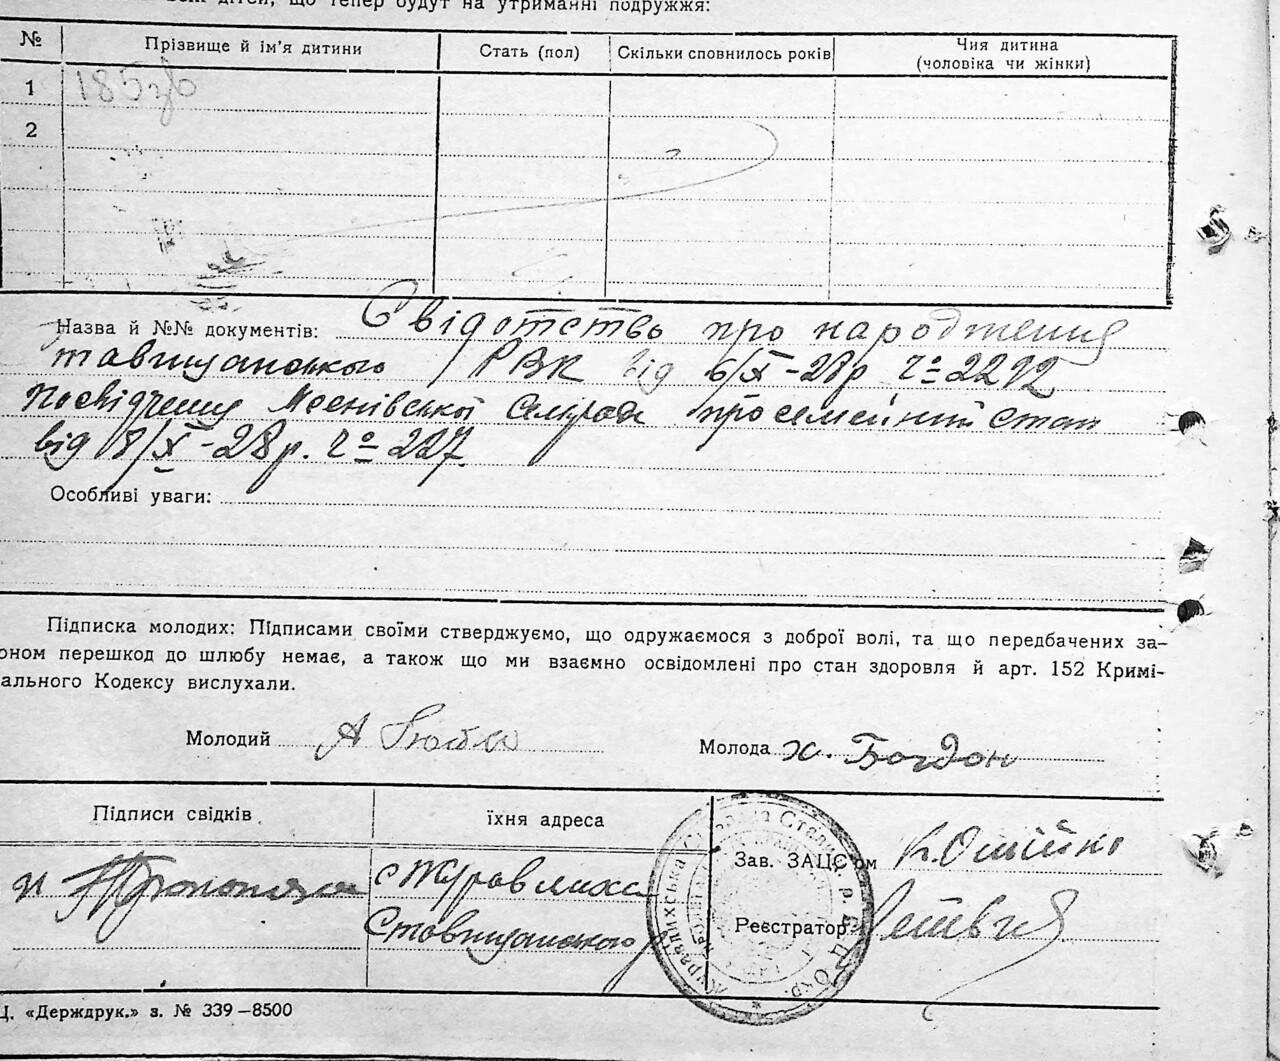 дітей, що тепер будут на утриманні подружжя:
№ Прізвище й ім'я дитини Стать (пол) Скільки сповнилось років Чия дитина (чоловіка чи жінки)
1 185зв
2
Назва й №№ документів: Свідотство про народження
тавищанського РВК від 6/X-28р ч⁰ 2292
Посвідчення сельради про семейний стан
від 8/X-28р. ч⁰ 227.
Особливі уваги:
Підписка молодих: Підписами своїми стверджуємо, що одружаємося з доброї волі, та що передбачених за-
оном перешкод до шлюбу немає, а також що ми взаємно освідомлені про стан здоровля й арт. 152 Кримі-
ального Кодексу вислухали.
Молодий А Молода Х. Богдон
Підписи свідків їхня адреса
Зав. ЗАЦС'ом
с Журавлиха
Ставищанського р
Реєстратор
Ц. «Держдрук.» з. № 339—8500